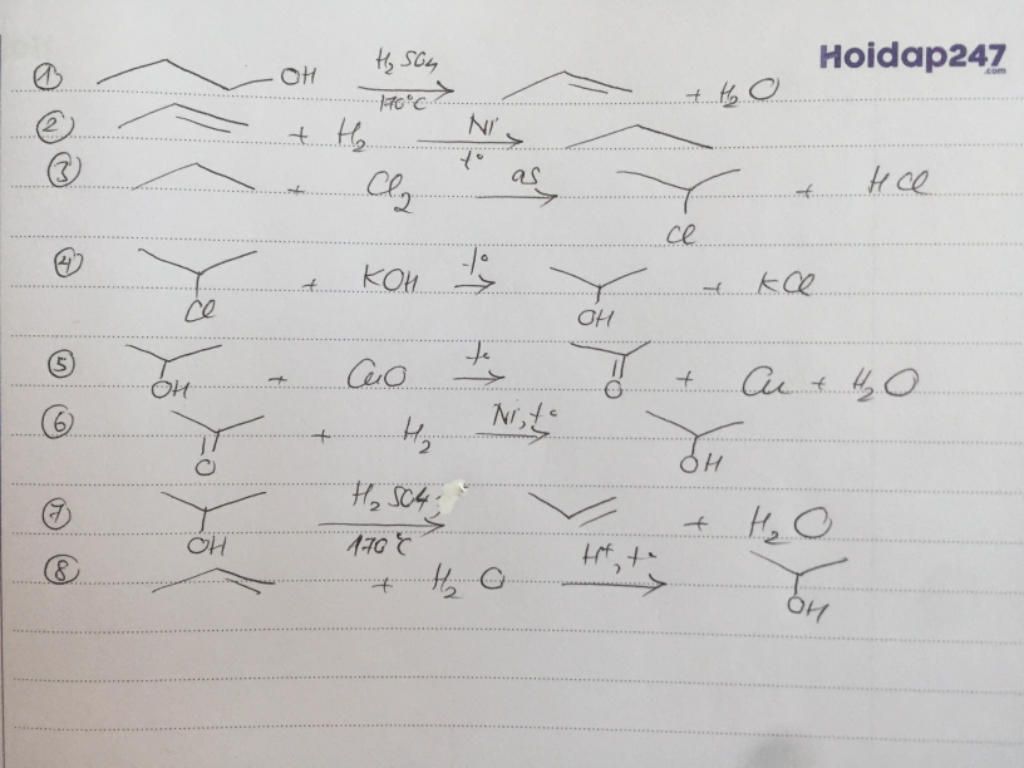 Hoidap247
.com
① OH H2SO4 170°C + H2O
② + H2 Ni t°
③ + Cl2 as Cl + HCl
④ Cl + KOH t° OH + KCl
⑤ OH + CuO t° O + Cu + H2O
⑥ O + H2 Ni, t° OH
⑦ OH H2SO4, 170°C + H2O
⑧ + H2O H+, t° OH